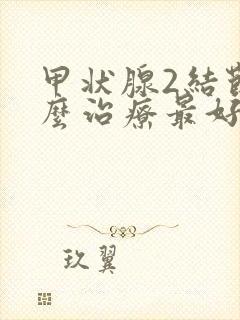 甲状腺2結
麼治療最好
玖翼